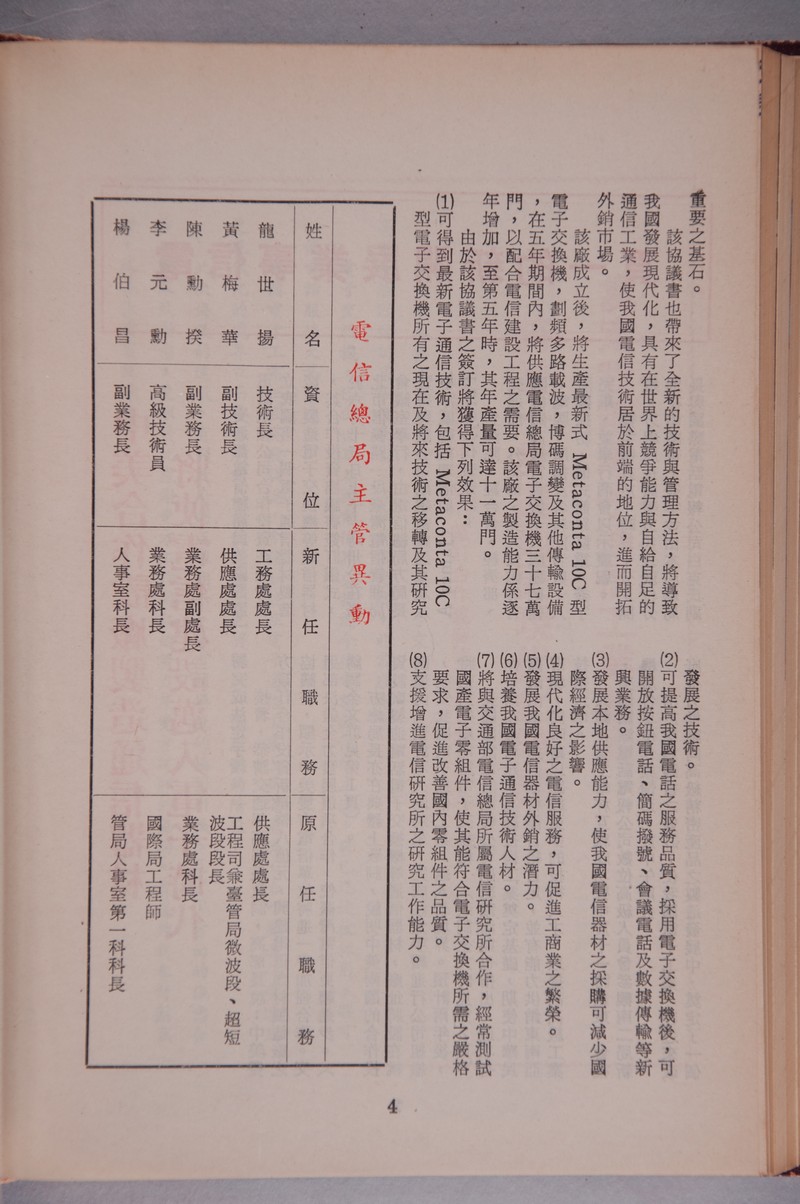 重要之基石。
該協議書也帶來了全新的技術與管理方法，將導致
我國發展現代化，具有在世界上競爭能力與自給自足的
通信工業，使我國電信技術居於前端的地位，進而開拓
外銷市場。
該廠成立後，將生產最新式 Metaconta 10C 型
電子交換機，劃頻多路載波，博碼調變及其他傳輸設備
，在五年期間內，將供應電信總局電子交換機三十七萬
門，以配合電信建設工程之需要。該廠之製造能力係逐
年增加，至第五年時，其年產量可達十一萬門。
由於該協議書之簽訂將獲得下列效果：
(1)可得到最新電子通信技術，包括 Metaconta 10C
型電子交換機所有之現在及將來技術之移轉及其研究
發展之技術。
(2)可提高我國電話之服務品質，採用電子交換機後，可
開放按鈕電話、簡碼撥號、會議電話及數據傳輸等新
興業務。
(3)發展本地供應能力，使我國電信器材之採購可減少國
際經濟之影響。
(4)現代化良好之電信服務，可促進工商業之繁榮。
(5)發展我國電信器材外銷之潛力。
(6)培養我國電子通信技術人材。
(7)將與交通部電信總局所屬電信研究所合作，經常測試
國產電子零組件，使其能符合電子交換機所需之嚴格
要求，促進改善國內零組件之品質。
(8)支援增進電信研究所之研究工作能力。
電信總局主管異動
姓名 資位 新任職務 原任職務
龍世揚 技術長 工務處處長 供應處處長
黃梅華 副技術長 供應處處長 工程司兼臺管局微波段、超短
波段段長
陳勳揆 副業務長 業務處副處長 業務處科長
李元勳 高級技術員 業務處科長 國際局工程師
楊伯昌 副業務長 人事室科長 管局人事室第一科科長
4